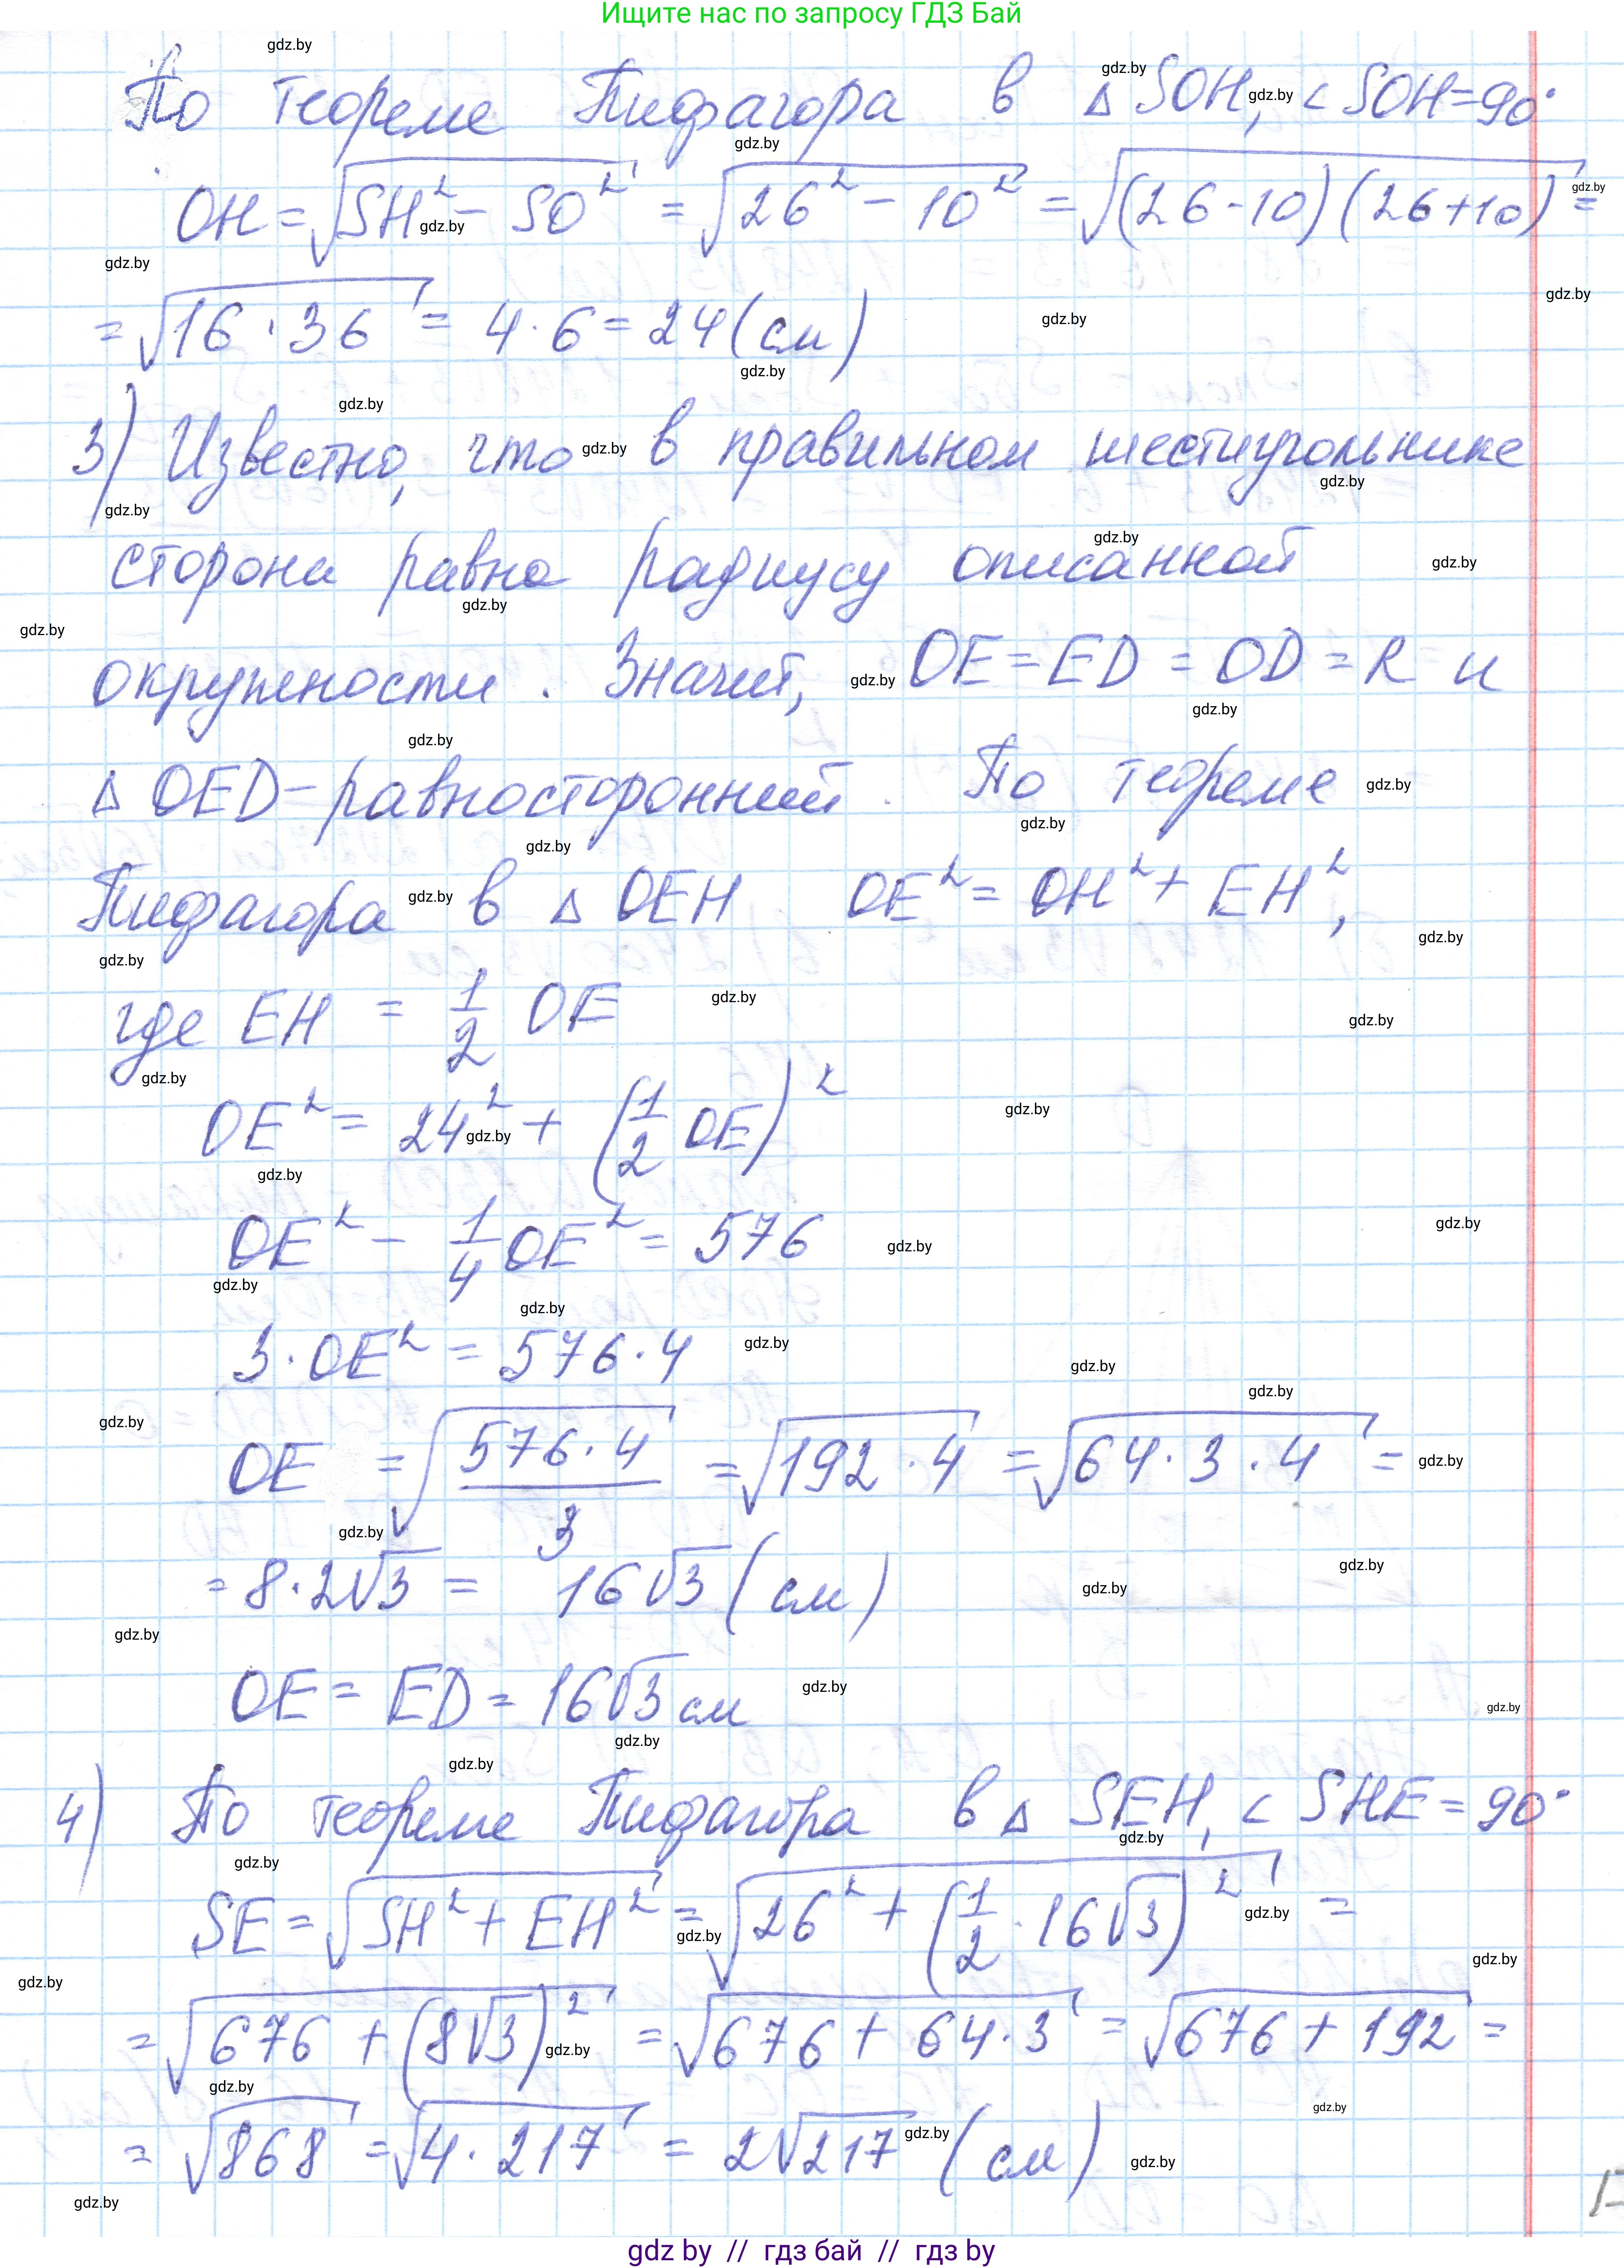 Ищите нас по запросу ГДЗ Бай
По теореме Пифагора в △ SOH, < SOH=90°
OH = √(SH² - SO²) = √(26² - 10²) = √((26-10)(26+10)) =
= √(16 · 36) = 4 · 6 = 24 (см)
3) Известно, что в правильном шестиугольнике
сторона равна радиусу описанной
окружности. Значит, OE = ED = OD = R и
△ OED - равносторонний. По теореме
Пифагора в △ OEH OE² = OH² + EH²,
где EH = 1/2 OE
OE² = 24² + (1/2 OE)²
OE² - 1/4 OE² = 576
3 · OE² = 576 · 4
OE = √(576 · 4 / 3) = √(192 · 4) = √(64 · 3 · 4) =
= 8 · 2√3 = 16√3 (см)
OE = ED = 16√3 см
4) По теореме Пифагора в △ SEH, < SHE = 90°
SE = √(SH² + EH²) = √(26² + (1/2 · 16√3)²) =
= √(676 + (8√3)²) = √(676 + 64 · 3) = √(676 + 192) =
= √868 = √(4 · 217) = 2√217 (см)
gdz by // гдз бай // гдз by